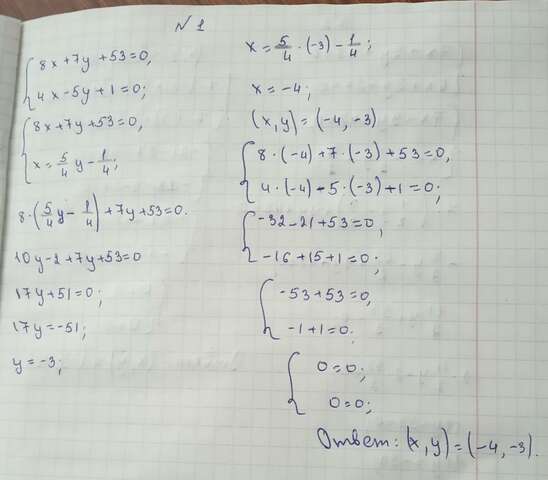 № 1
8x+7y+53=0,
4x-5y+1=0;
8x+7y+53=0,
x=5/4y-1/4;
8·(5/4y-1/4)+7y+53=0.
10y-2+7y+53=0
17y+51=0;
17y=-51;
y=-3;
x=5/4·(-3)-1/4;
x=-4;
(x,y)=(-4,-3)
8·(-4)+7·(-3)+53=0,
4·(-4)-5·(-3)+1=0;
-32-21+53=0,
-16+15+1=0;
-53+53=0,
-1+1=0;
0=0;
0=0;
Ответ: (x,y)=(-4,-3).